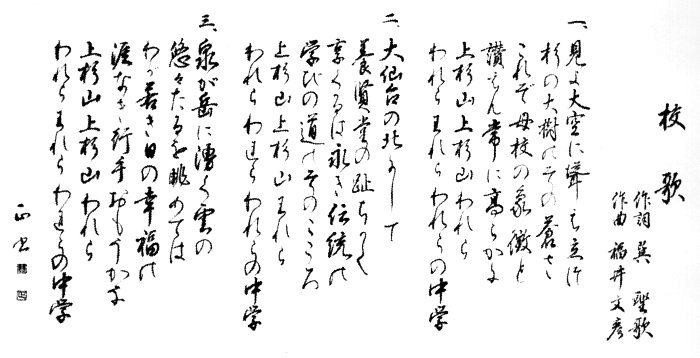 校歌
作詞 巽 聖歌
作曲 福井文彦
一、見よ大空に聳え立つ
杉の大樹のその蒼さ
これぞ母校の象徴と
讃えん常に高らかに
上杉山上杉山われら
われらわれらわれらの中学
二、大仙台の北にして
養賢堂の趾ちかく
享くるは永き伝統の
学びの道のそのこころ
上杉山上杉山われら
われらわれらわれらの中学
三、泉が岳に湧く雲の
悠々たるを眺めては
わが若き日の幸福の
涯なき行手おもうかな
上杉山上杉山われら
われらわれらわれらの中学